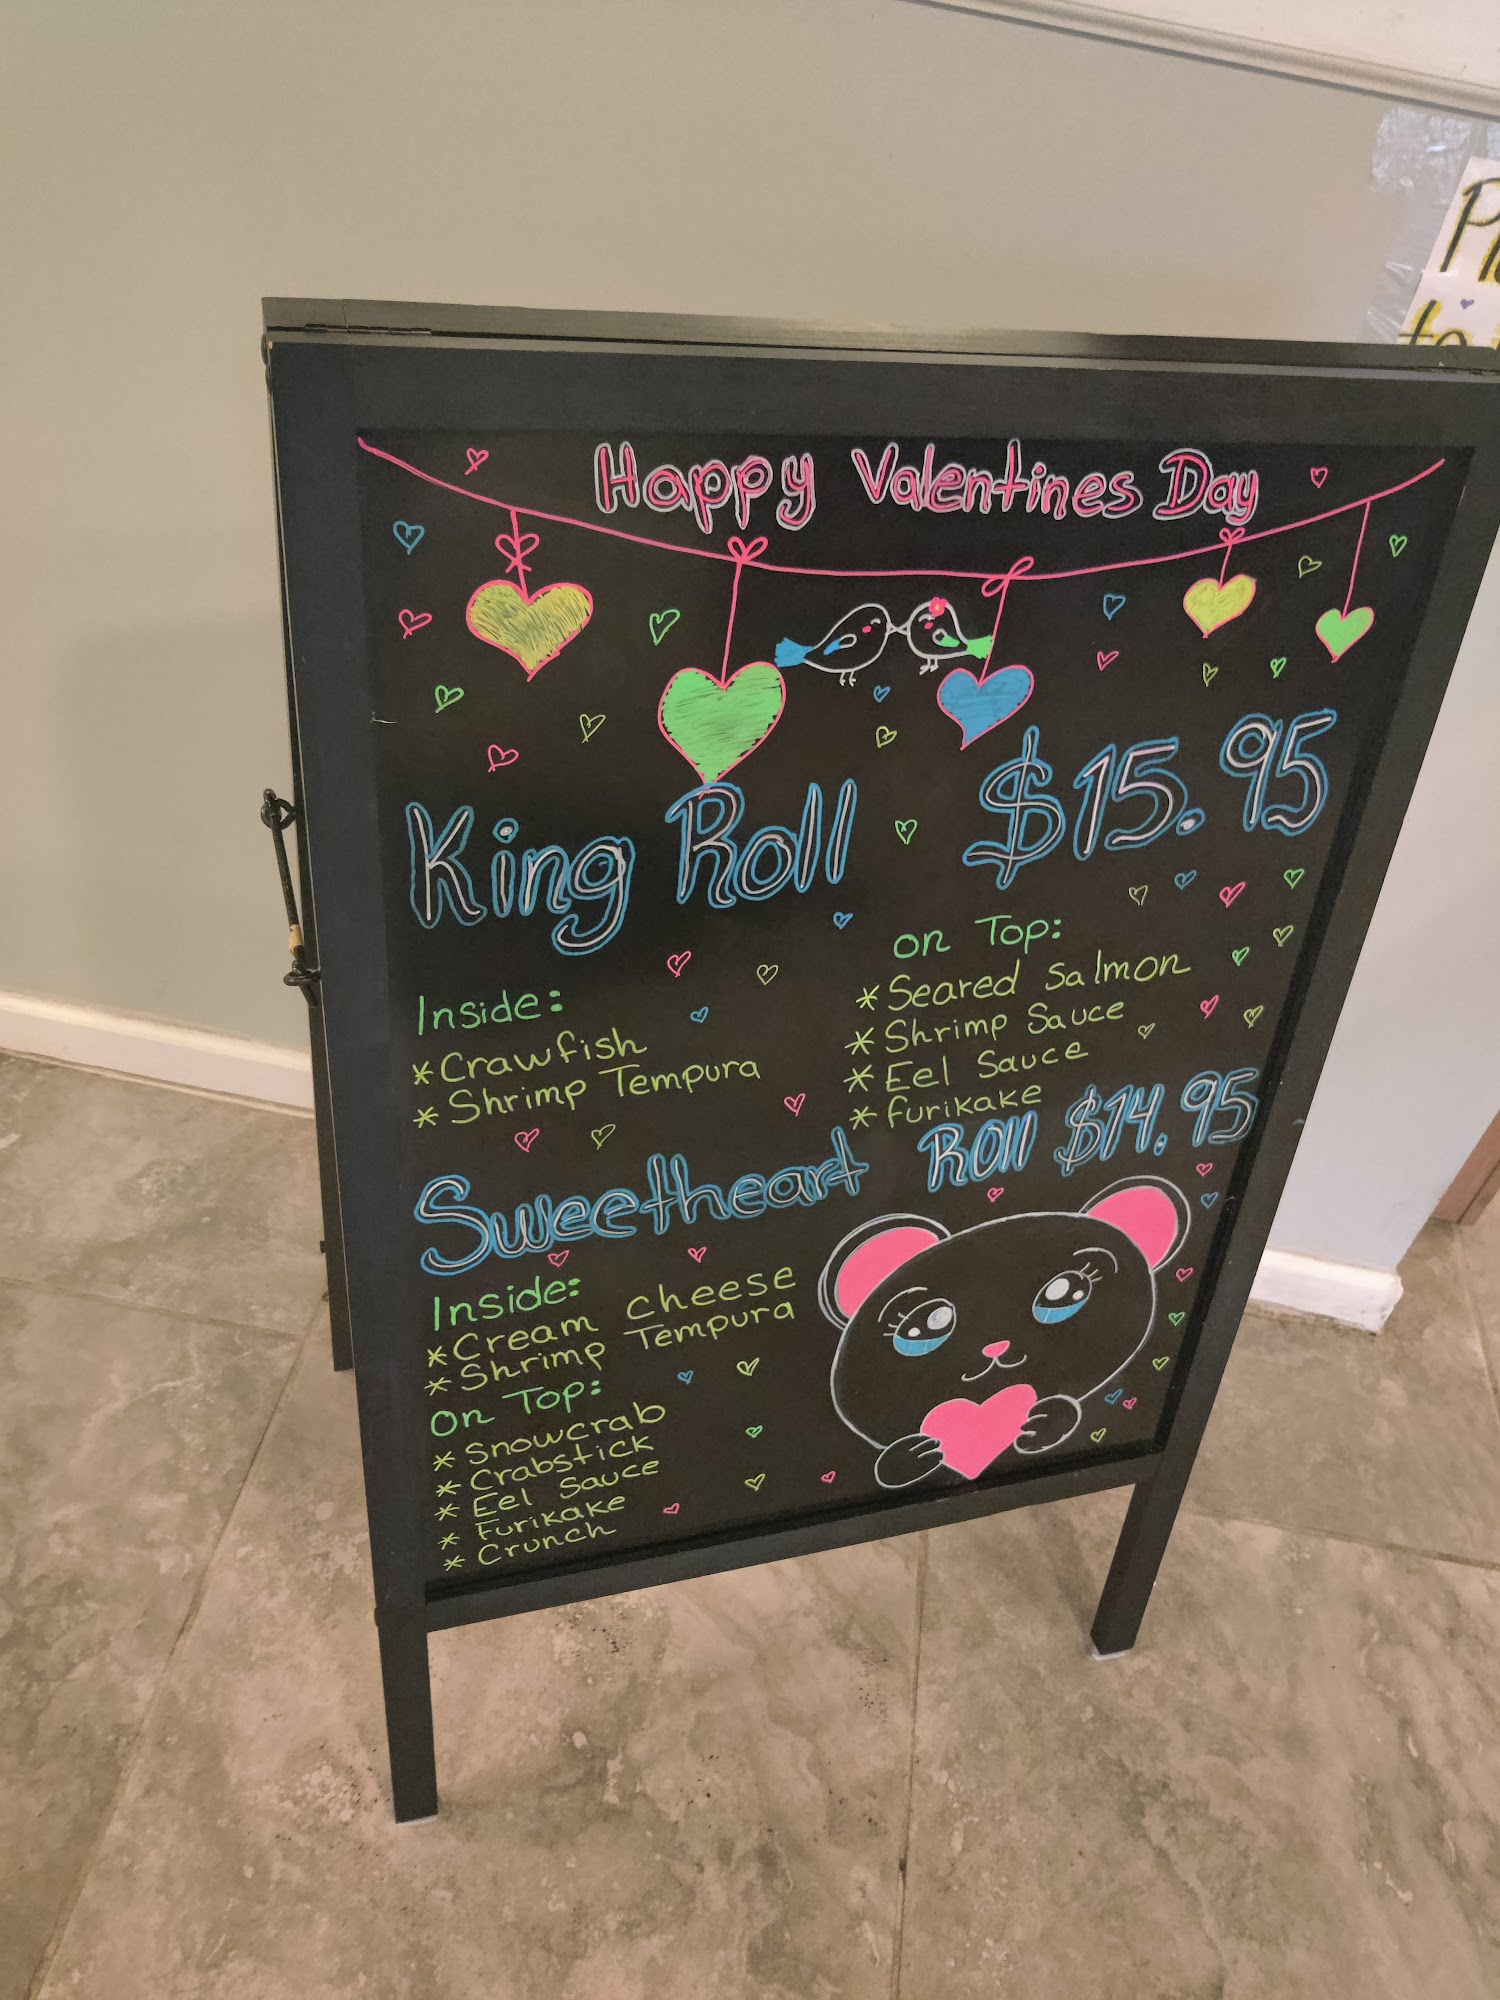 Happy Valentines Day
King Roll $15.95
Inside:
*Crawfish
*Shrimp Tempura
on Top:
*Seared Salmon
*Shrimp Sauce
*Eel Sauce
*furikake
Sweetheart Roll $14.95
Inside:
*Cream cheese
*Shrimp Tempura
on Top:
*Snowcrab
*Crabstick
*Eel Sauce
*Furikake
*Crunch
to